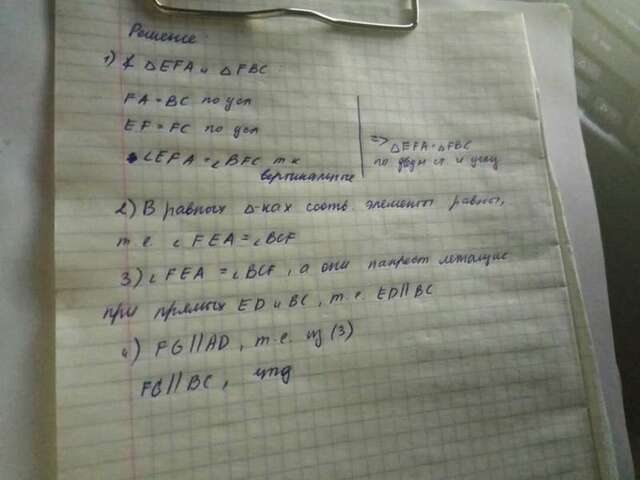 Решение:
1) ∆ EFA и ∆ FBC
FA = BC по усл
EF = FC по усл
∠EFA = ∠BFC т к
вертикальные
=> ∆EFA = ∆FBC
по двум ст. и углу
2) В равных ∆-ках соотв. элементы равны,
т. е. ∠ FEA = ∠BCF
3) ∠ FEA = ∠BCF, а они накрест лежащие
при прямых ED и BC, т. е. ED || BC
4) FG || AD, т. е. из (3)
FG || BC, чтд